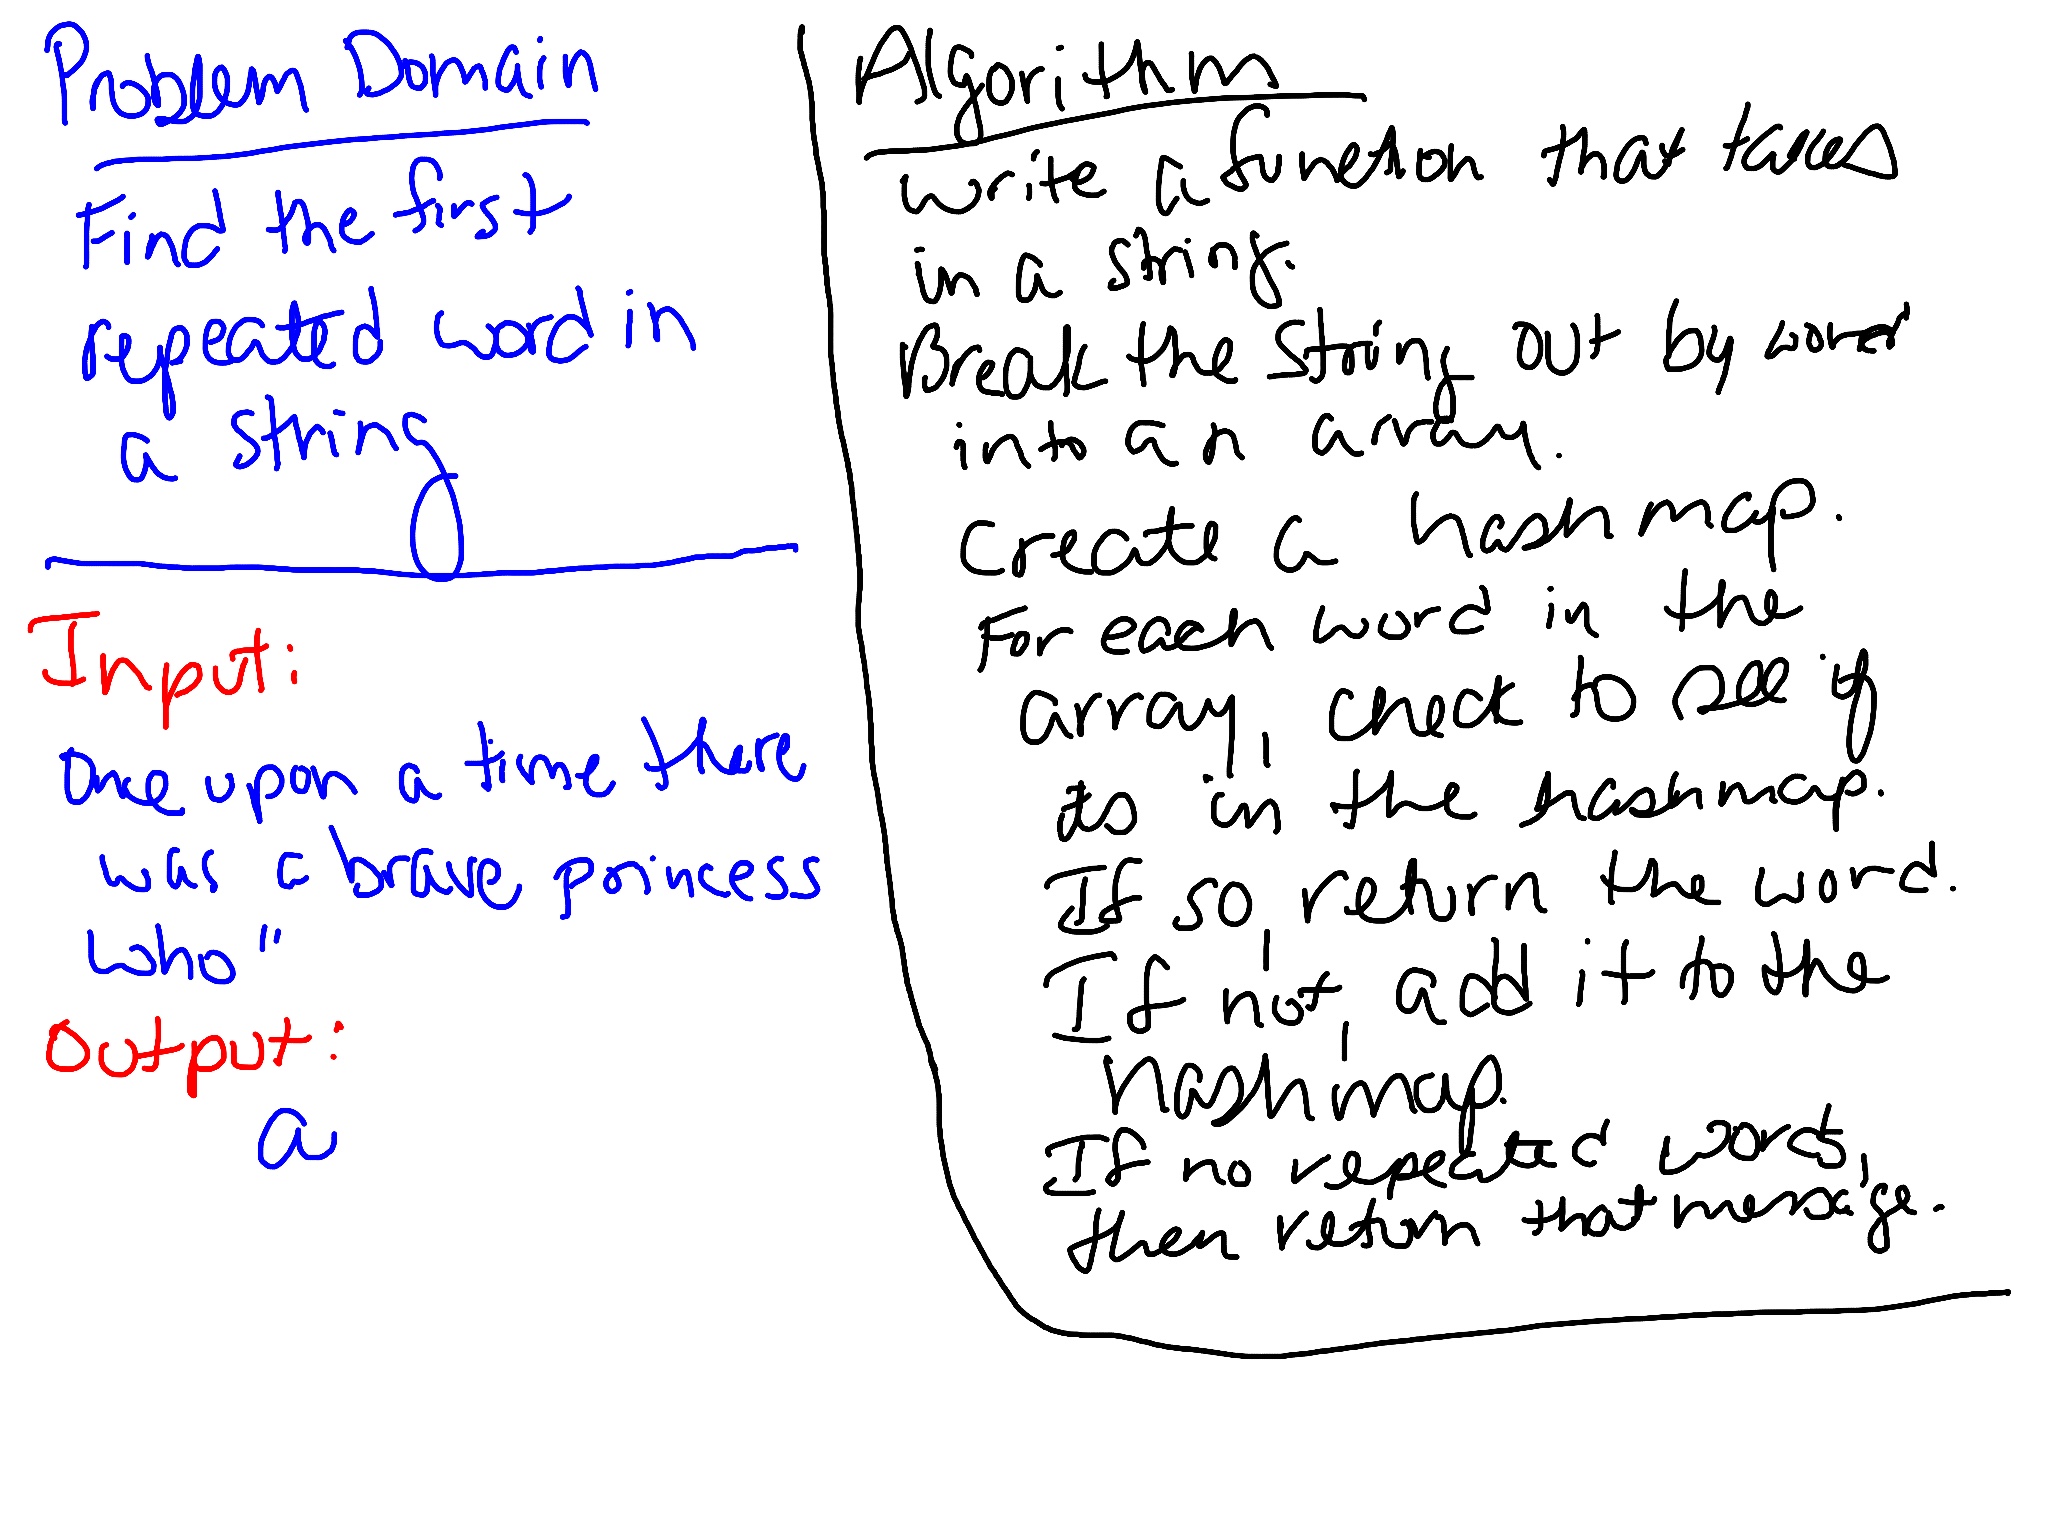 Problem Domain
Find the first
repeated word in
a string
Input:
Once upon a time there
was a brave princess
who"
Output:
a
Algorithm
write a function that takes
in a string.
Break the string out by word
into an array.
Create a hashmap.
For each word in the
array, check to see if
its in the hashmap.
If so, return the word.
If not, add it to the
hashmap.
If no repeated words,
then return that message.